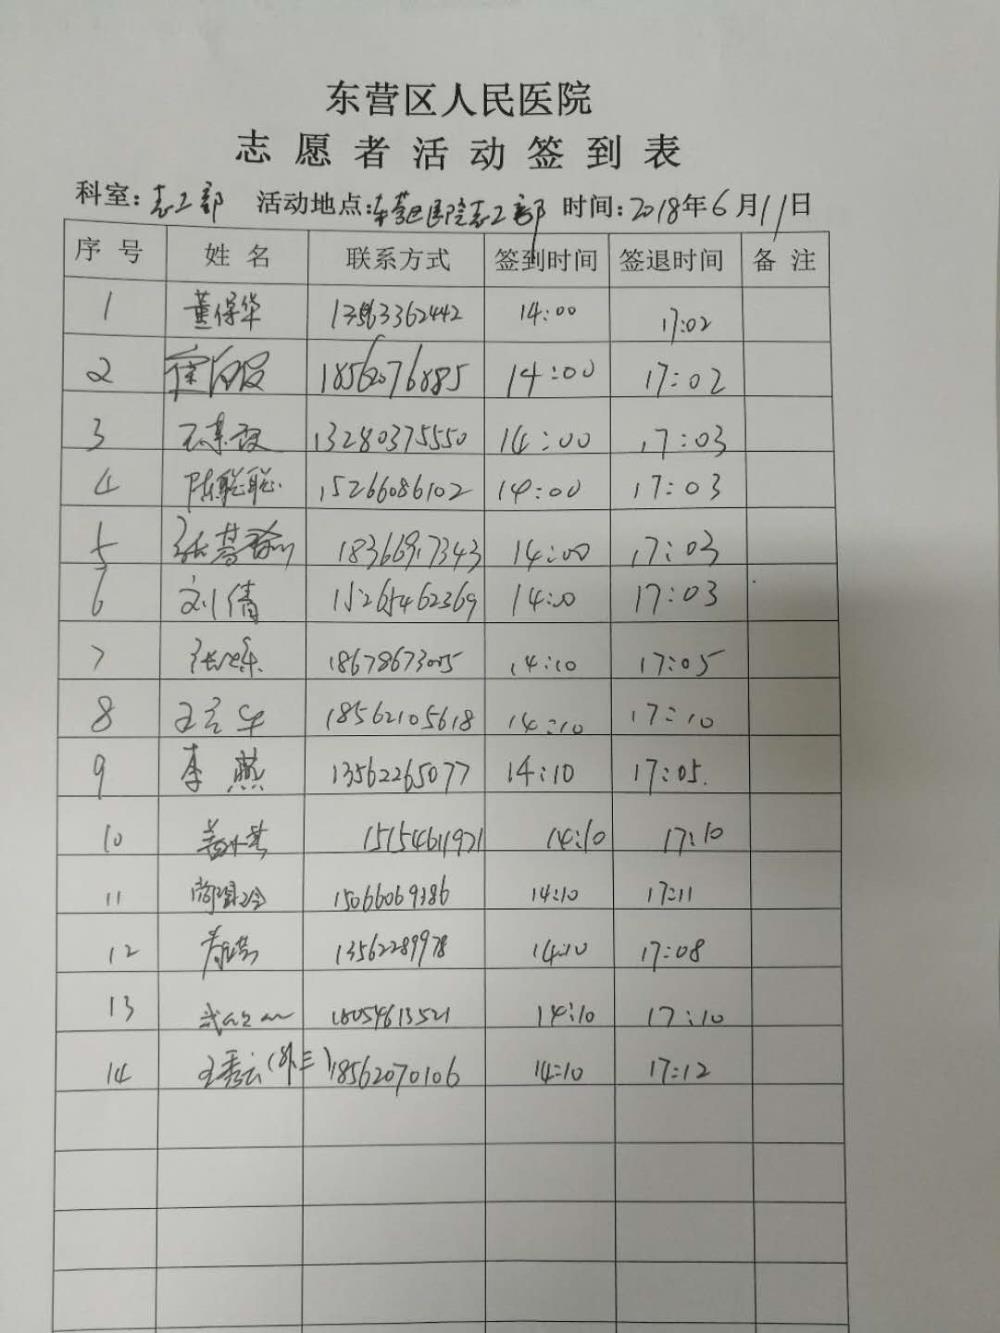 东营区人民医院
志愿者活动签到表
科室:志工部 活动地点:东营区医院志工部 时间:2018年6月11日
序号 姓名 联系方式 签到时间 签退时间 备注
1 董保华 13563362442 14:00 17:02
2 18562076885 14:00 17:02
3 13280375550 14:00 17:03
4 陈聪聪 15266086102 14:00 17:03
5 18366917343 14:00 17:03
6 刘倩 15265462369 14:00 17:03
7 18678673005 14:10 17:05
8 18562105618 14:10 17:10
9 李燕 13562265077 14:10 17:05
10 15154611971 14:10 17:10
11 15066069386 14:10 17:11
12 13562289978 14:10 17:08
13 18054613521 14:10 17:10
14 王秀云(外三) 18562070106 14:10 17:12